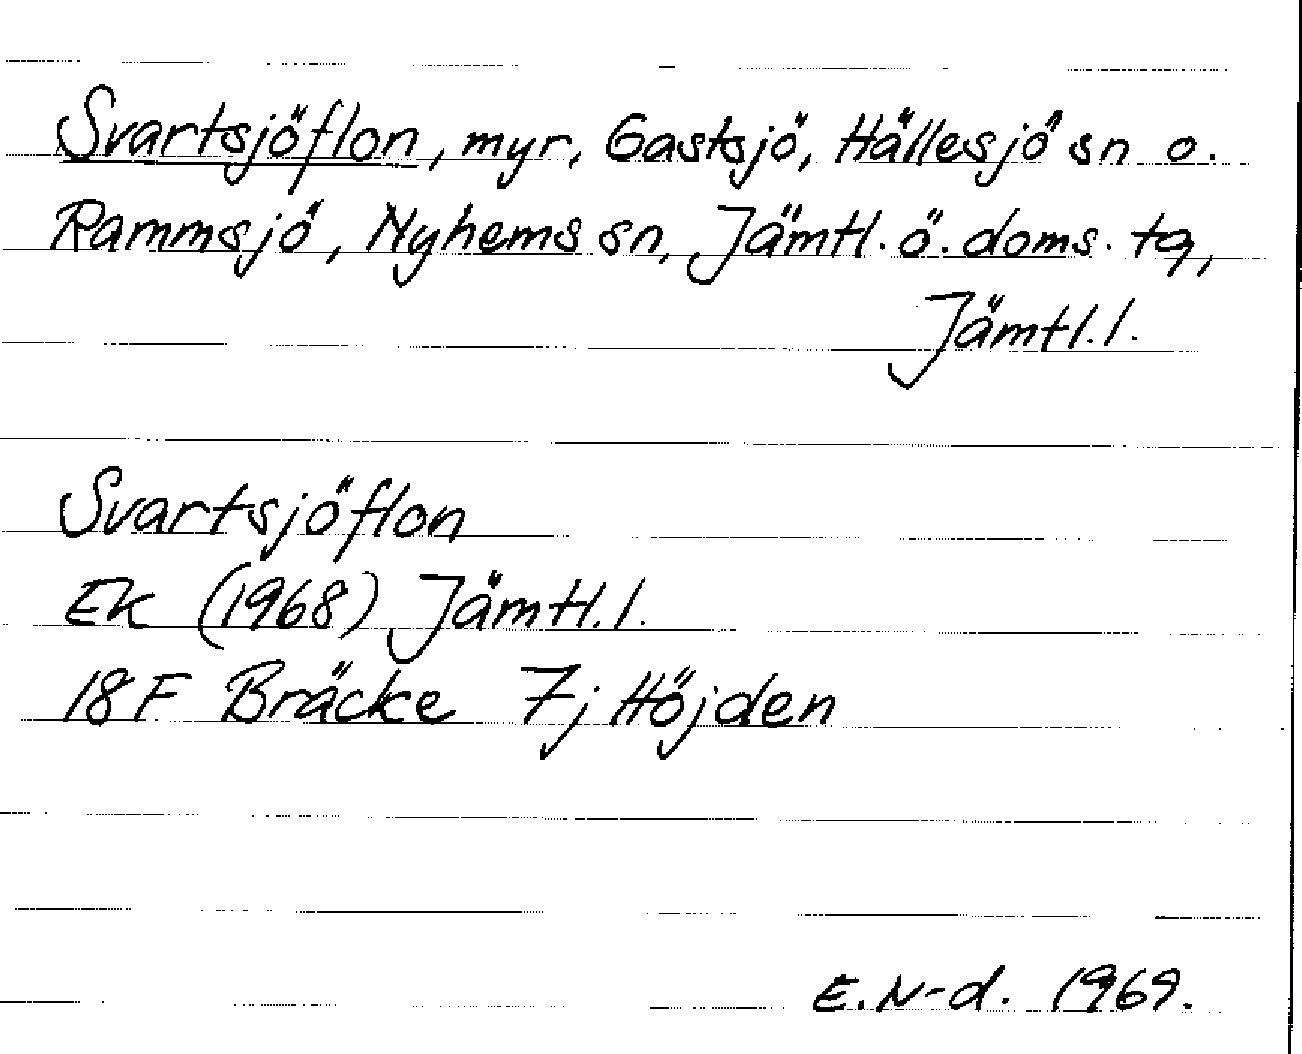 Svartsjöflon, myr, Gastsjö, Hällesjö sn o.
Rammsjö, Nyhems sn, Jämtl. ö. doms. tg,
Jämtl. l.
Svartsjöflon
EK (1968) Jämtl. l.
18 F Bräcke 7j Höjden
E. N-d. 1969.